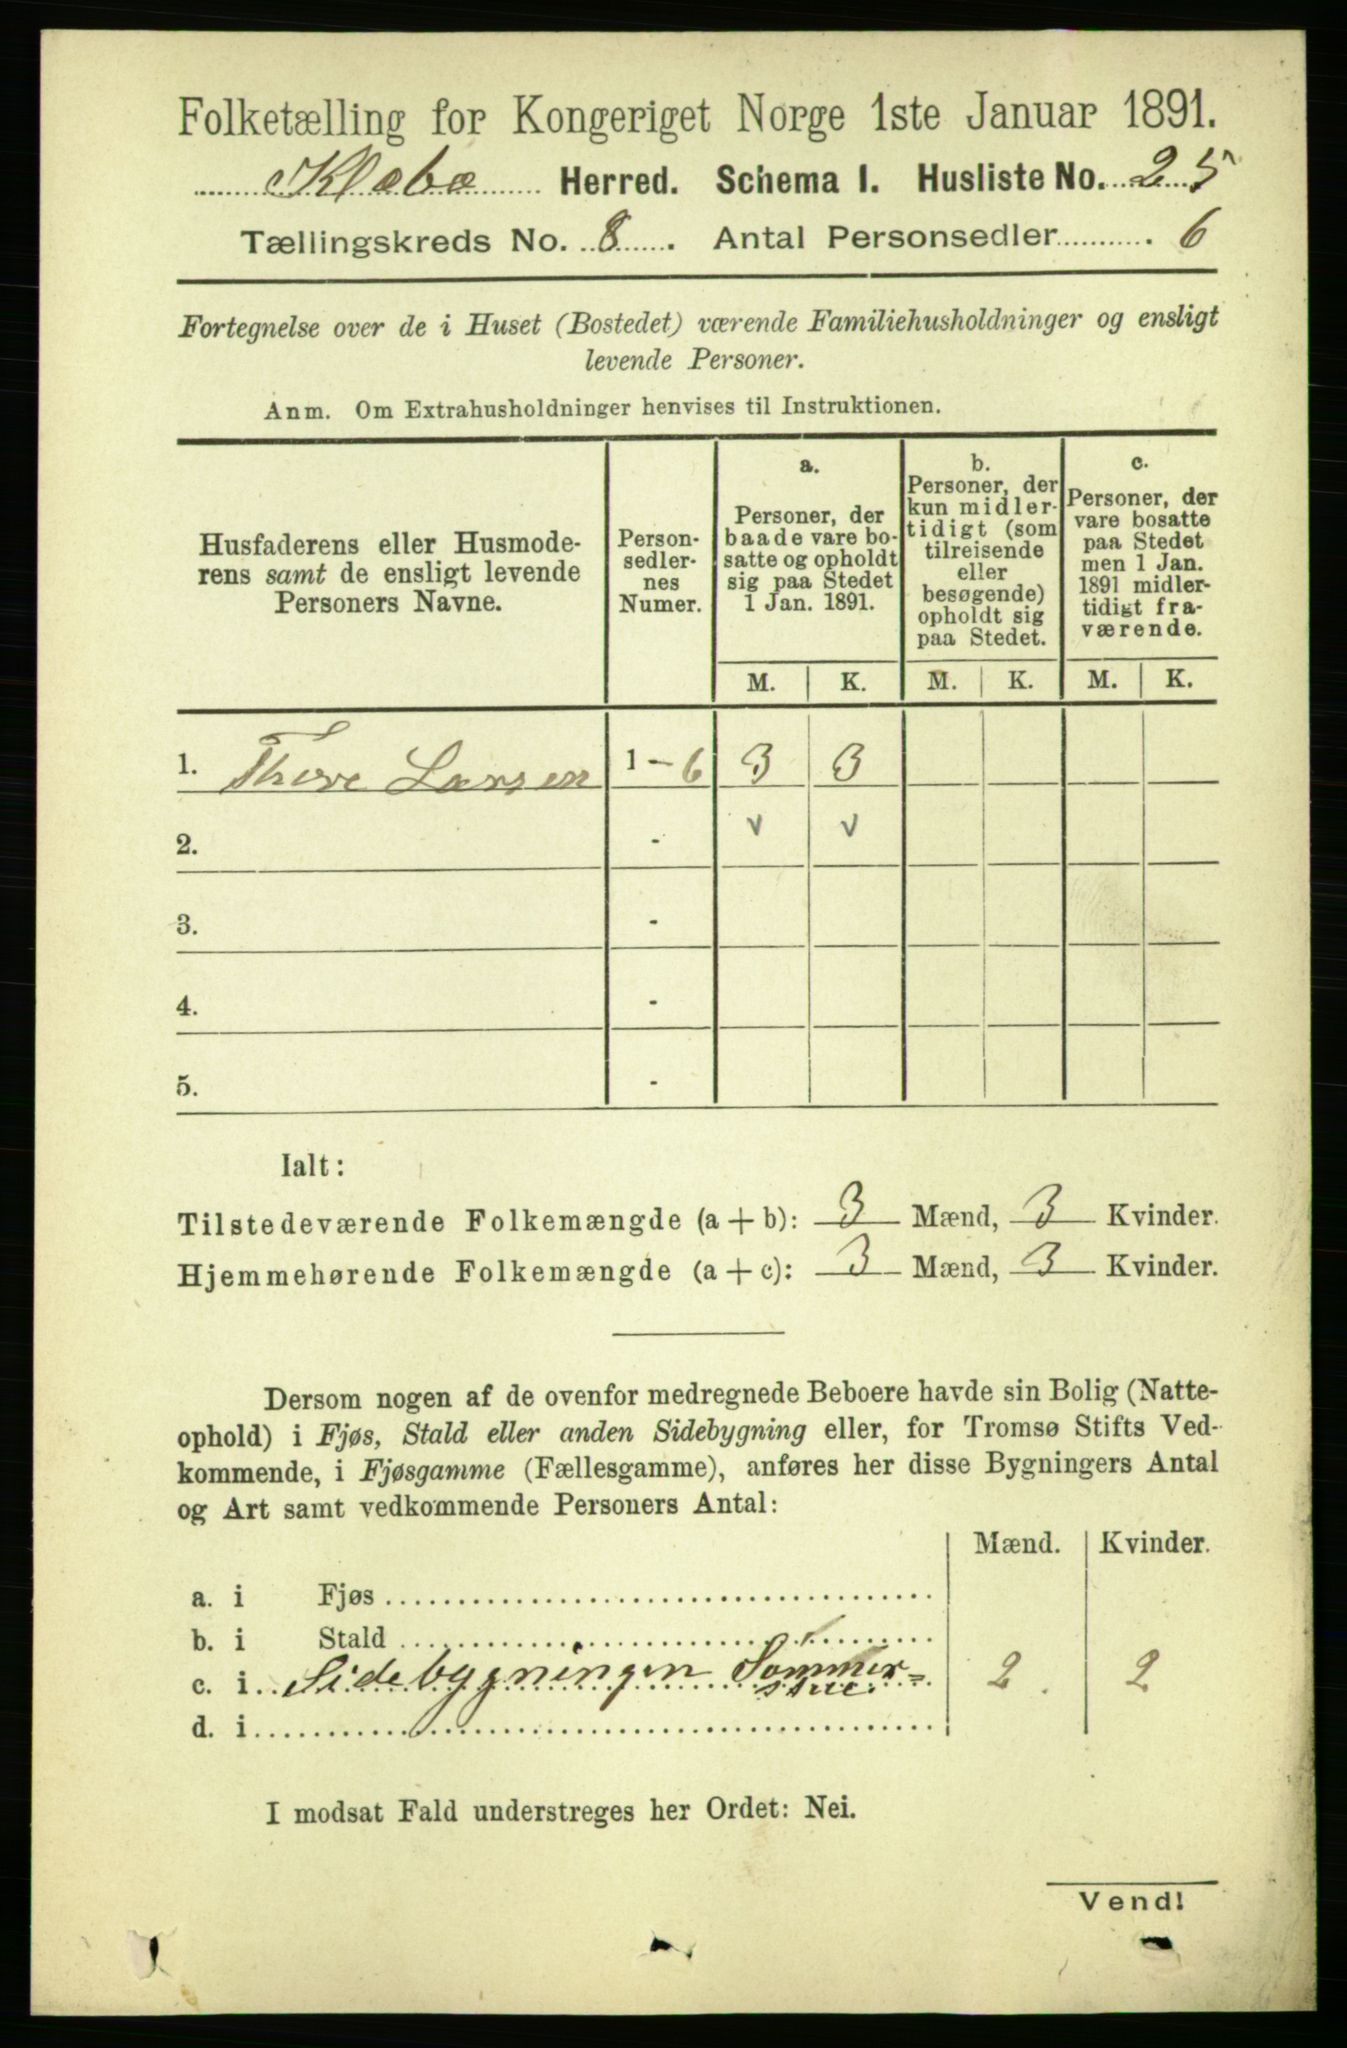 Folketælling for Kongeriget Norge 1ste Januar 1891.
Klæbo Herred. Schema I. Husliste No. 25
Tællingskreds No. 8. Antal Personsedler 6
Fortegnelse over de i Huset (Bostedet) værende Familiehusholdninger og ensligt
levende Personer.
Anm. Om Extrahusholdninger henvises til Instruktionen.
Husfaderens eller Husmode-
rens samt de ensligt levende
Personers Navne.
Person-
sedler-
nes
Numer.
a.
Personer, der
baade vare bo-
satte og opholdt
sig paa Stedet
1 Jan. 1891.
b.
Personer, der
kun midler-
tidigt (som
tilreisende
eller
besøgende)
opholdt sig
paa Stedet.
c.
Personer, der
vare bosatte
paa Stedet
men 1 Jan.
1891 midler-
tidigt fra-
værende.
M. K. M. K. M. K.
1. Thore Larsen 1-6 3 3
2. - v v
3. -
4. -
5. -
Ialt:
Tilstedeværende Folkemængde (a+b): 3 Mænd, 3 Kvinder.
Hjemmehørende Folkemængde (a+c): 3 Mænd, 3 Kvinder.
Dersom nogen af de ovenfor medregnede Beboere havde sin Bolig (Natte-
ophold) i Fjøs, Stald eller anden Sidebygning eller, for Tromsø Stifts Ved-
kommende, i Fjøsgamme (Fællesgamme), anføres her disse Bygningers Antal
og Art samt vedkommende Personers Antal:
Mænd. Kvinder.
a. i Fjøs
b. i Stald
c. i Sidebygningen Sommer= 2. 2
stue.
d. i
I modsat Fald understreges her Ordet: Nei.
Vend!